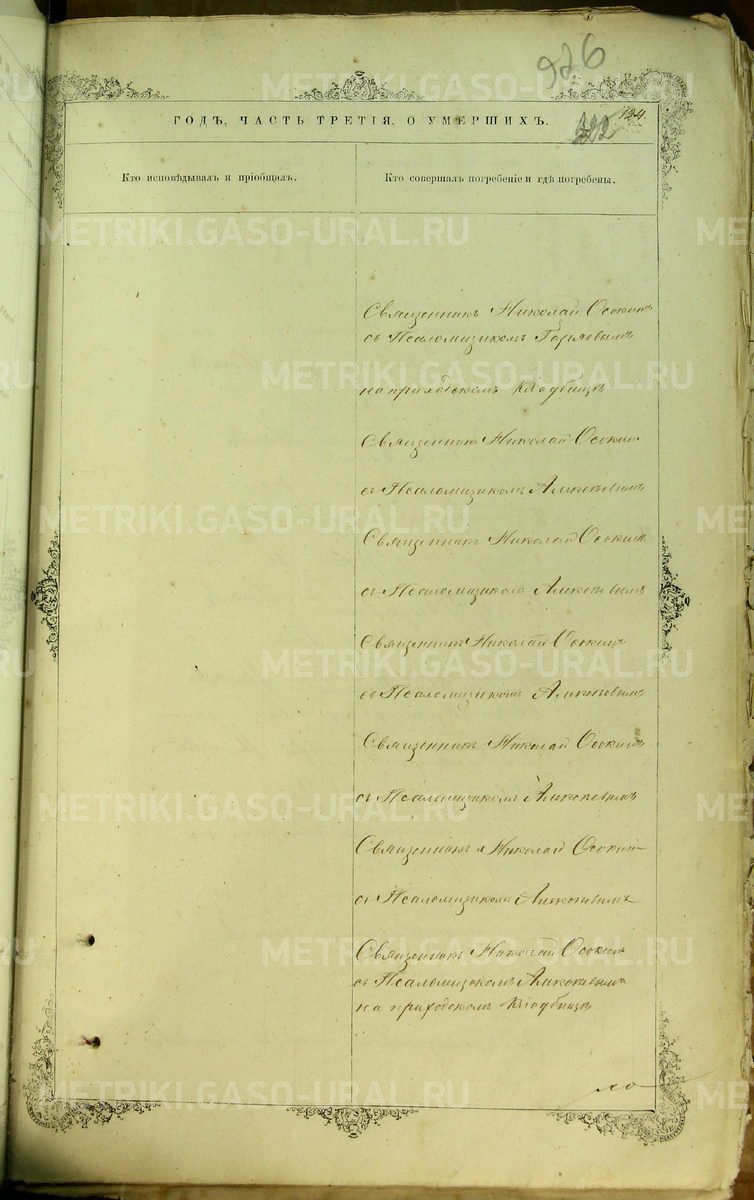 926
124.
222
ГОДЪ, ЧАСТЬ ТРЕТІЯ, О УМЕРШИХЪ.
Кто исповѣдывалъ и пріобщалъ.
Кто совершалъ погребеніе и гдѣ погребены.
Священникъ Николай Осокинъ
съ Псаломщикомъ
на приходскомъ Кладбищѣ
Священникъ Николай Осокин
съ Псаломщикомъ
Священникъ Николай Осокин
съ Псаломщиком
Священникъ Николай Осокинъ
съ Псаломщиком
Священникъ Николай Осокинъ
съ Псаломщикомъ
Священникъ Николай Осокин
съ Псаломщикомъ
Священникъ Николай Осокин
съ Псаломщикомъ
на приходскомъ Кладбищѣ
METRIKI.GASO-URAL.RU